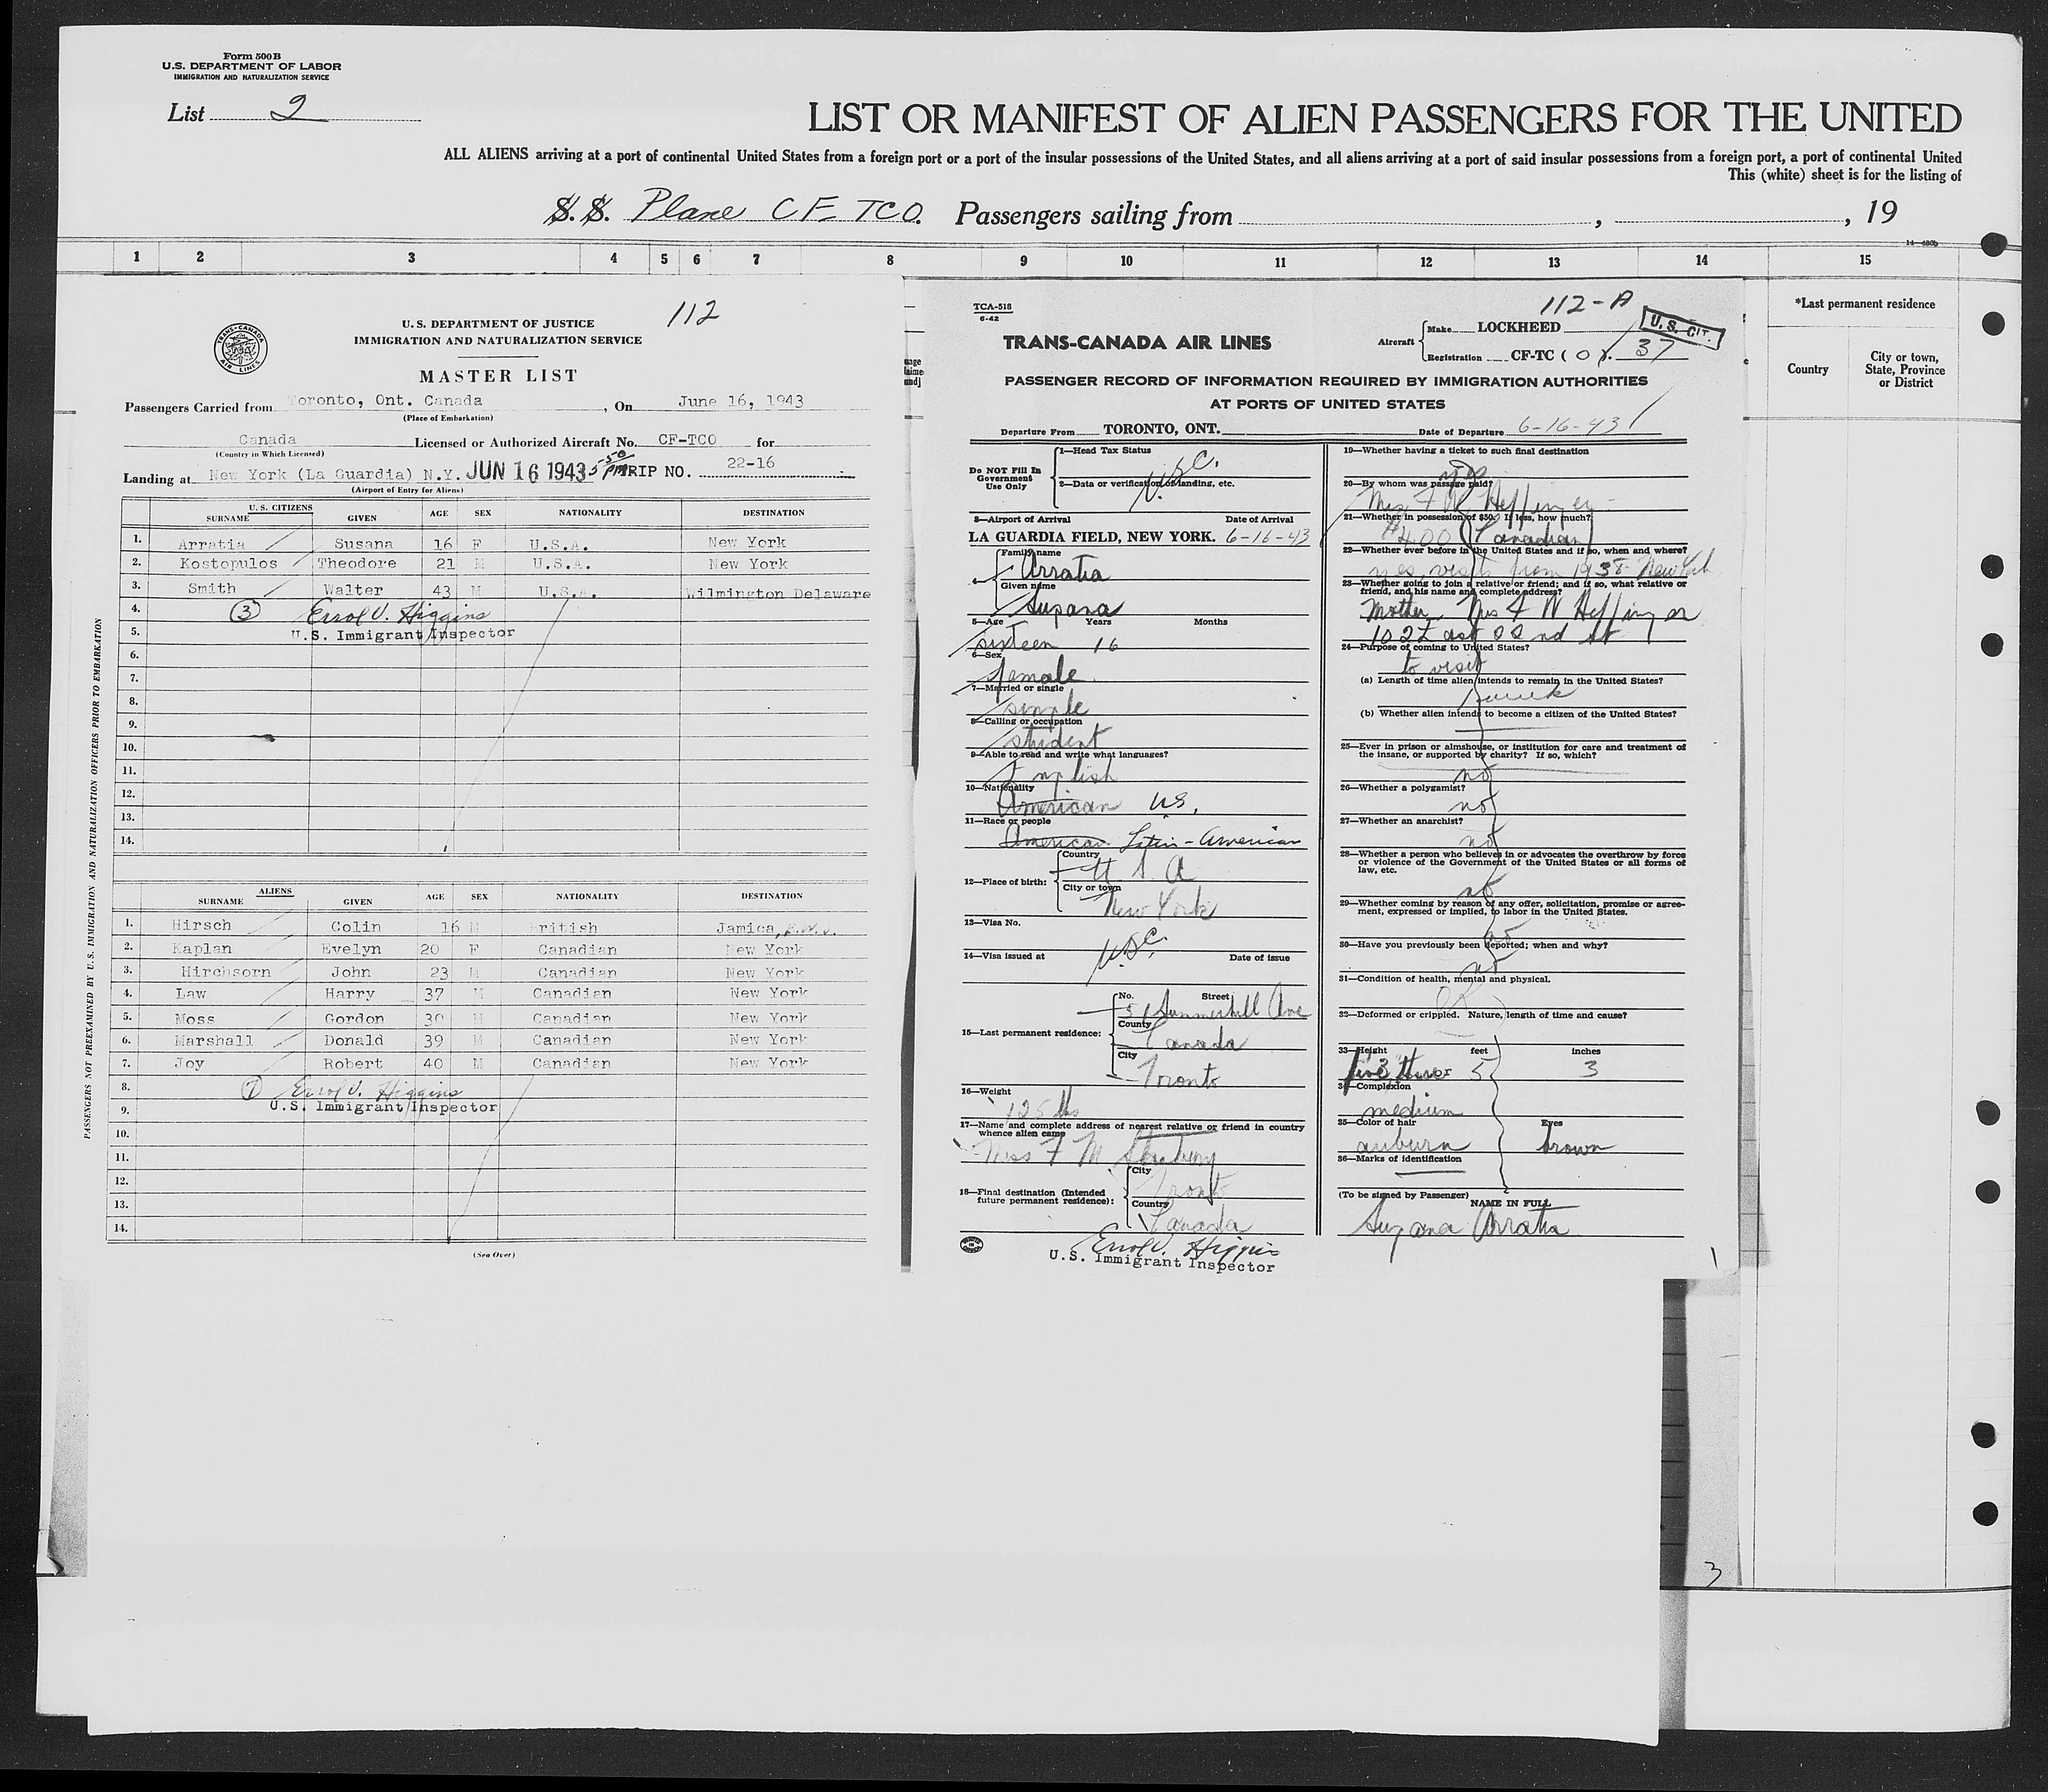 Form 500B
U.S. DEPARTMENT OF LABOR
IMMIGRATION AND NATURALIZATION SERVICE
List 2
LIST OR MANIFEST OF ALIEN PASSENGERS FOR THE UNITED
ALL ALIENS arriving at a port of continental United States from a foreign port or a port of the insular possessions of the United States, and all aliens arriving at a port of said insular possessions from a foreign port, a port of continental United
This (white) sheet is for the listing of
S.S. Plane CF-TCO. Passengers sailing from , , 19
1 2 3 4 5 6 7 8 9 10 11 12 13 14 15
112
TRANS-CANADA AIR LINES
U.S. DEPARTMENT OF JUSTICE
IMMIGRATION AND NATURALIZATION SERVICE
MASTER LIST
Passengers Carried from Toronto, Ont. Canada , On June 16, 1943
(Place of Embarkation)
Canada Licensed or Authorized Aircraft No. CF-TCO for
(Country in Which Licensed)
Landing at New York (La Guardia) N.Y. JUN 16 1943 5 50 PM TRIP NO. 22-16
(Airport of Entry for Aliens)
U.S. CITIZENS
SURNAME GIVEN AGE SEX NATIONALITY DESTINATION
1. Arratia Susana 16 F U.S.A. New York
2. Kostopulos Theodore 21 M U.S.A. New York
3. Smith Walter 43 M U.S.A. Wilmington Delaware
4. 3 Errol V. Higgins
5. U.S. Immigrant Inspector
6.
7.
8.
9.
10.
11.
12.
13.
14.
ALIENS
SURNAME GIVEN AGE SEX NATIONALITY DESTINATION
1. Hirsch Colin 16 M British Jamica, B.W.I.
2. Kaplan Evelyn 20 F Canadian New York
3. Hirchsorn John 23 M Canadian New York
4. Law Harry 37 M Canadian New York
5. Moss Gordon 30 M Canadian New York
6. Marshall Donald 39 M Canadian New York
7. Joy Robert 40 M Canadian New York
8. 7 Errol V. Higgins
9. U.S. Immigrant Inspector
10.
11.
12.
13.
14.
(See Over)
PASSENGERS NOT PREEXAMINED BY U.S. IMMIGRATION AND NATURALIZATION OFFICERS PRIOR TO EMBARKATION
TCA-518
6-42
112-A
TRANS-CANADA AIR LINES
Aircraft Make LOCKHEED
Registration CF-TC (O). 37
U.S. CIT.
PASSENGER RECORD OF INFORMATION REQUIRED BY IMMIGRATION AUTHORITIES
AT PORTS OF UNITED STATES
Departure From TORONTO, ONT. Date of Departure 6-16-43
Do NOT Fill In Government Use Only
1—Head Tax Status
U.S.C.
2—Data or verification of landing, etc.
3—Airport of Arrival Date of Arrival
LA GUARDIA FIELD, NEW YORK. 6-16-43
Family name
Arratia
Given name
Susana
5—Age Years Months
sixteen 16
6—Sex
female
7—Married or single
single
8—Calling or occupation
student
9—Able to read and write what languages?
English
10—Nationality
American US.
11—Race or people
American Latin-American
12—Place of birth: Country
U S A
City or town
New York
13—Visa No.
U.S.C.
14—Visa issued at Date of issue
15—Last permanent residence: No. Street
51 Summerhill Ave
County
Canada
City
Toronto
16—Weight
125 lbs
17—Name and complete address of nearest relative or friend in country
whence alien came
Miss F M
18—Final destination (Intended future permanent residence): City
Toronto
Country
Canada
Errol V. Higgins
U.S. Immigrant Inspector
19—Whether having a ticket to such final destination
yes
20—By whom was passage paid?
Mrs F W Heffinger
21—Whether in possession of $50. If less, how much?
$4.00 Canadian
22—Whether ever before in the United States and if so, when and where?
yes, visit from 1938 New York
23—Whether going to join a relative or friend; and if so, what relative or
friend, and his name and complete address?
Mother, Mrs F W Heffinger
24—Purpose of coming to United States?
to visit
(a) Length of time alien intends to remain in the United States?
1 week
(b) Whether alien intends to become a citizen of the United States?
25—Ever in prison or almshouse, or institution for care and treatment of
the insane, or supported by charity? If so, which?
no
26—Whether a polygamist?
no
27—Whether an anarchist?
no
28—Whether a person who believes in or advocates the overthrow by force
or violence of the Government of the United States or all forms of
law, etc.
no
29—Whether coming by reason of any offer, solicitation, promise or agree-
ment, expressed or implied, to labor in the United States.
no
30—Have you previously been deported; when and why?
no
31—Condition of health, mental and physical.
OK
32—Deformed or crippled. Nature, length of time and cause?
33—Height feet inches
five three 5 3
34—Complexion
medium
35—Color of hair Eyes
auburn brown
36—Marks of identification
(To be signed by Passenger) NAME IN FULL
Susana Arratia
1
*Last permanent residence
Country
City or town, State, Province or District
3